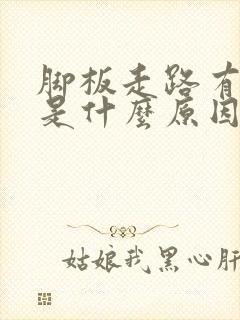 脚板走路有
是什麼原因
姑娘我黑心肝